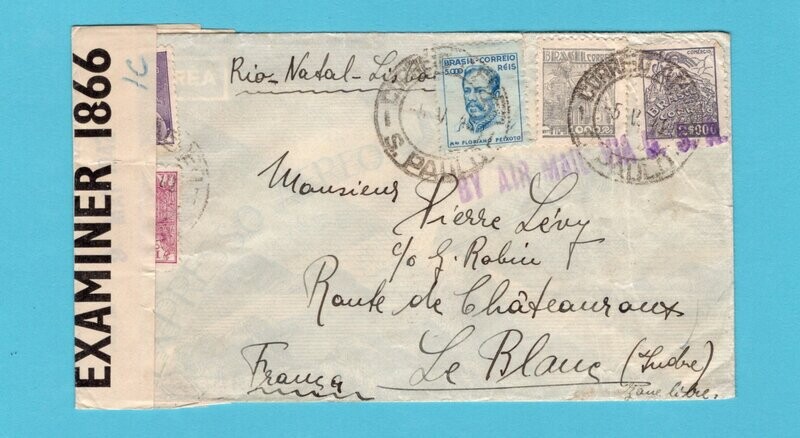 EXAMINER 1866
1C
Rio-Natal-Lisboa
BRASIL-CORREIO
5000 RÉIS
MAL FLORIANO PEIXOTO
BRASIL CORREIO
COMERCIO
S. PAULO
BY AIR MAIL
Monsieur
Pierre Lévy
c/o G. Robin
Route de Châteauroux
Le Blanc (Indre)
França
Zone libre.